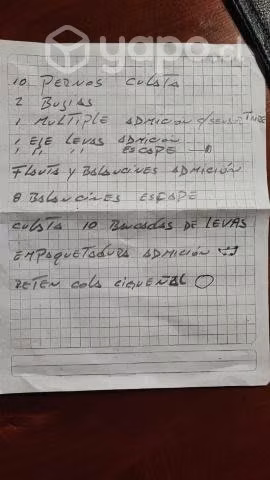 yapo.cl
10 PERNOS CULATA
2 BUGIAS
1 MULTIPLE ADMICION C/SENSOR
1 EJE LEVAS ADMICION
1 " " " ESCAPE
FLAUTA Y BALANCINES ADMICIÓN
8 BALANCINES ESCAPE
CULATA 10 BANCADAS DE LEVAS
EMPAQUETADURA ADMICIÓN
RETEN COLA CIGUEÑAL